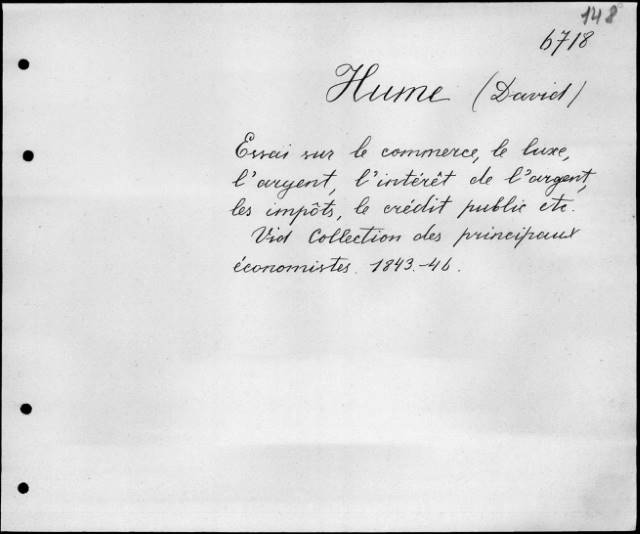 148
6718
Hume (David)
Essai sur le commerce, le luxe,
l'argent, l'intérêt de l'argent,
les impôts, le crédit public etc.
Vid Collection des principaux
économistes. 1843.-46.